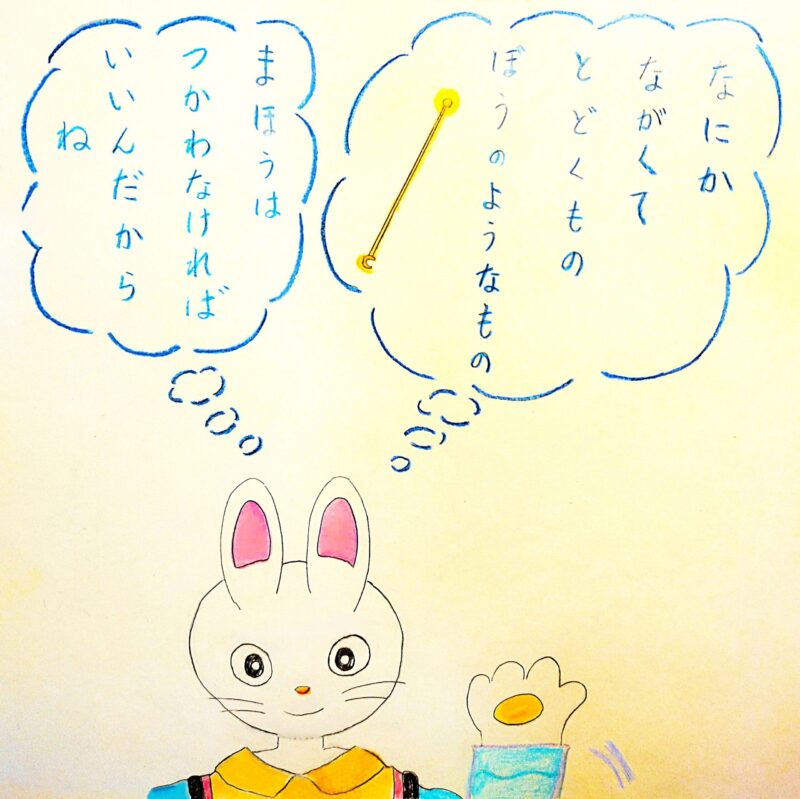 なにか
ながくて
とどくもの
ぼうのようなもの
まほうは
つかわなければ
いいんだから
ね